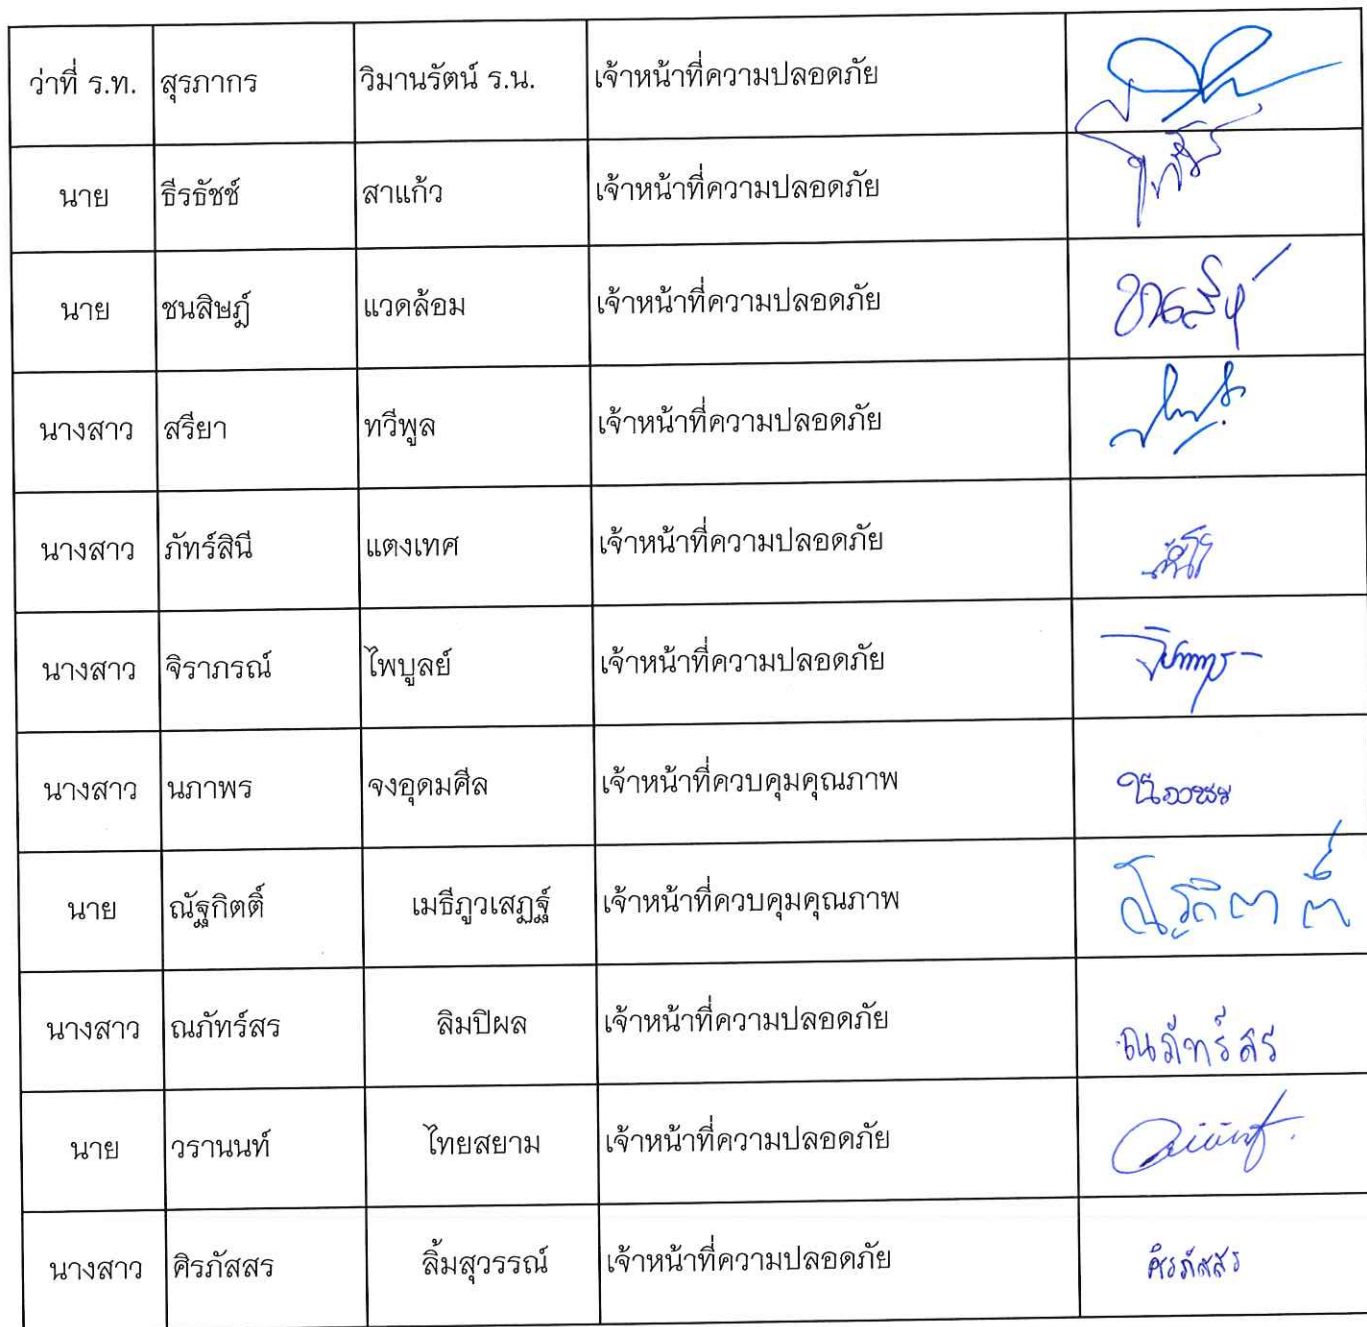 ว่าที่ ร.ท. สุรภากร วิมานรัตน์ ร.น. เจ้าหน้าที่ความปลอดภัย
นาย ธีรธัชช์ สาแก้ว เจ้าหน้าที่ความปลอดภัย
นาย ชนสิษฎ์ แวดล้อม เจ้าหน้าที่ความปลอดภัย
นางสาว สรียา ทวีพูล เจ้าหน้าที่ความปลอดภัย
นางสาว ภัทร์สินี แตงเทศ เจ้าหน้าที่ความปลอดภัย
นางสาว จิราภรณ์ ไพบูลย์ เจ้าหน้าที่ความปลอดภัย
นางสาว นภาพร จงอุดมศีล เจ้าหน้าที่ควบคุมคุณภาพ
นาย ณัฐกิตติ์ เมธีภูวเสฏฐ์ เจ้าหน้าที่ควบคุมคุณภาพ
นางสาว ณภัทร์สร ลิมปิผล เจ้าหน้าที่ความปลอดภัย ณภัทร์สร
นาย วรานนท์ ไทยสยาม เจ้าหน้าที่ความปลอดภัย
นางสาว ศิรภัสสร ลิ้มสุวรรณ์ เจ้าหน้าที่ความปลอดภัย ศิรภัสสร